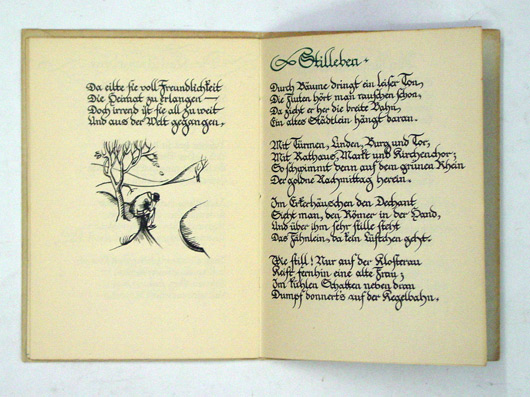 Da eilte sie voll Freundlichkeit
Die Heimat zu erlangen —
Doch irrend ist sie all zu weit
Und aus der Welt gegangen.
Stilleben.
Durch Bäume dringt ein leiser Ton,
Die Fluten hört man rauschen schon,
Da zieht er her die breite Bahn,
Ein altes Städtlein hängt daran.
Mit Türmen, Linden, Burg und Tor,
Mit Rathaus, Markt und Kirchenchor;
So schwimmt denn auf dem grünen Rhein
Der goldne Nachmittag herein.
Im Erkerhäuschen den Dechant
Sieht man, den Römer in der Hand,
Und über ihm sehr stille steht
Das Fähnlein, da kein Lüftchen geht.
Wie still! Nur auf der Klosterau
Keift fernhin eine alte Frau;
Im kühlen Schatten neben dran
Dumpf donnert's auf der Kegelbahn.